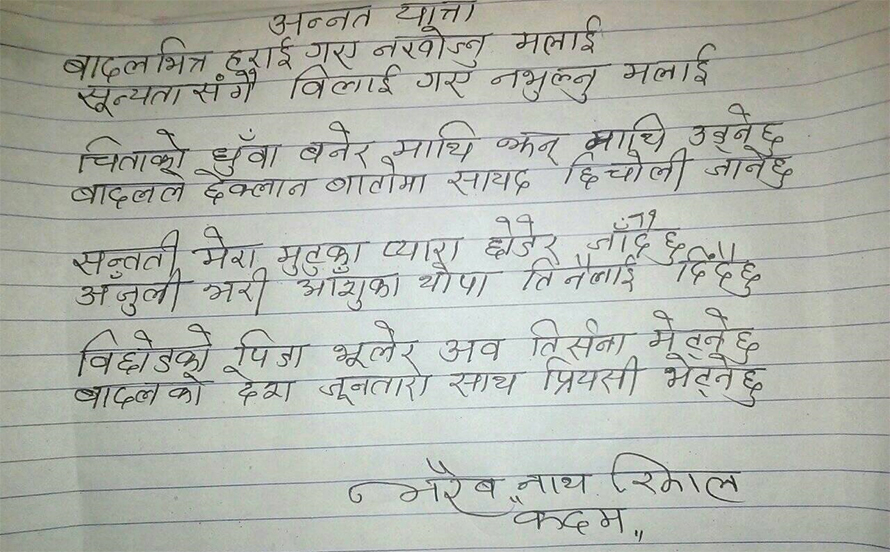 अन्नत यात्रा
बादलभित्र हराई गए नखोज्नु मलाई
सून्यतासंगै विलाई गए नभुल्नु मलाई
चिताको धुँवा बनेर माथि झन् माथि उड्नेछु
बादलले छेक्लान बाटोमा सायद छिचोली जानेछु
सन्तती मेरा मुटुका प्यारा छोडेर जाँदैछु
अँजुली भरी आँशुका थोपा तिनैलाई दिँदैछु
विछोडको पिडा भूलेर अव तिर्सना मेट्नेछु
बादलको देश जूनतारा साथ प्रियसी भेट्नेछु
भैरब नाथ रिमाल
"कदम"